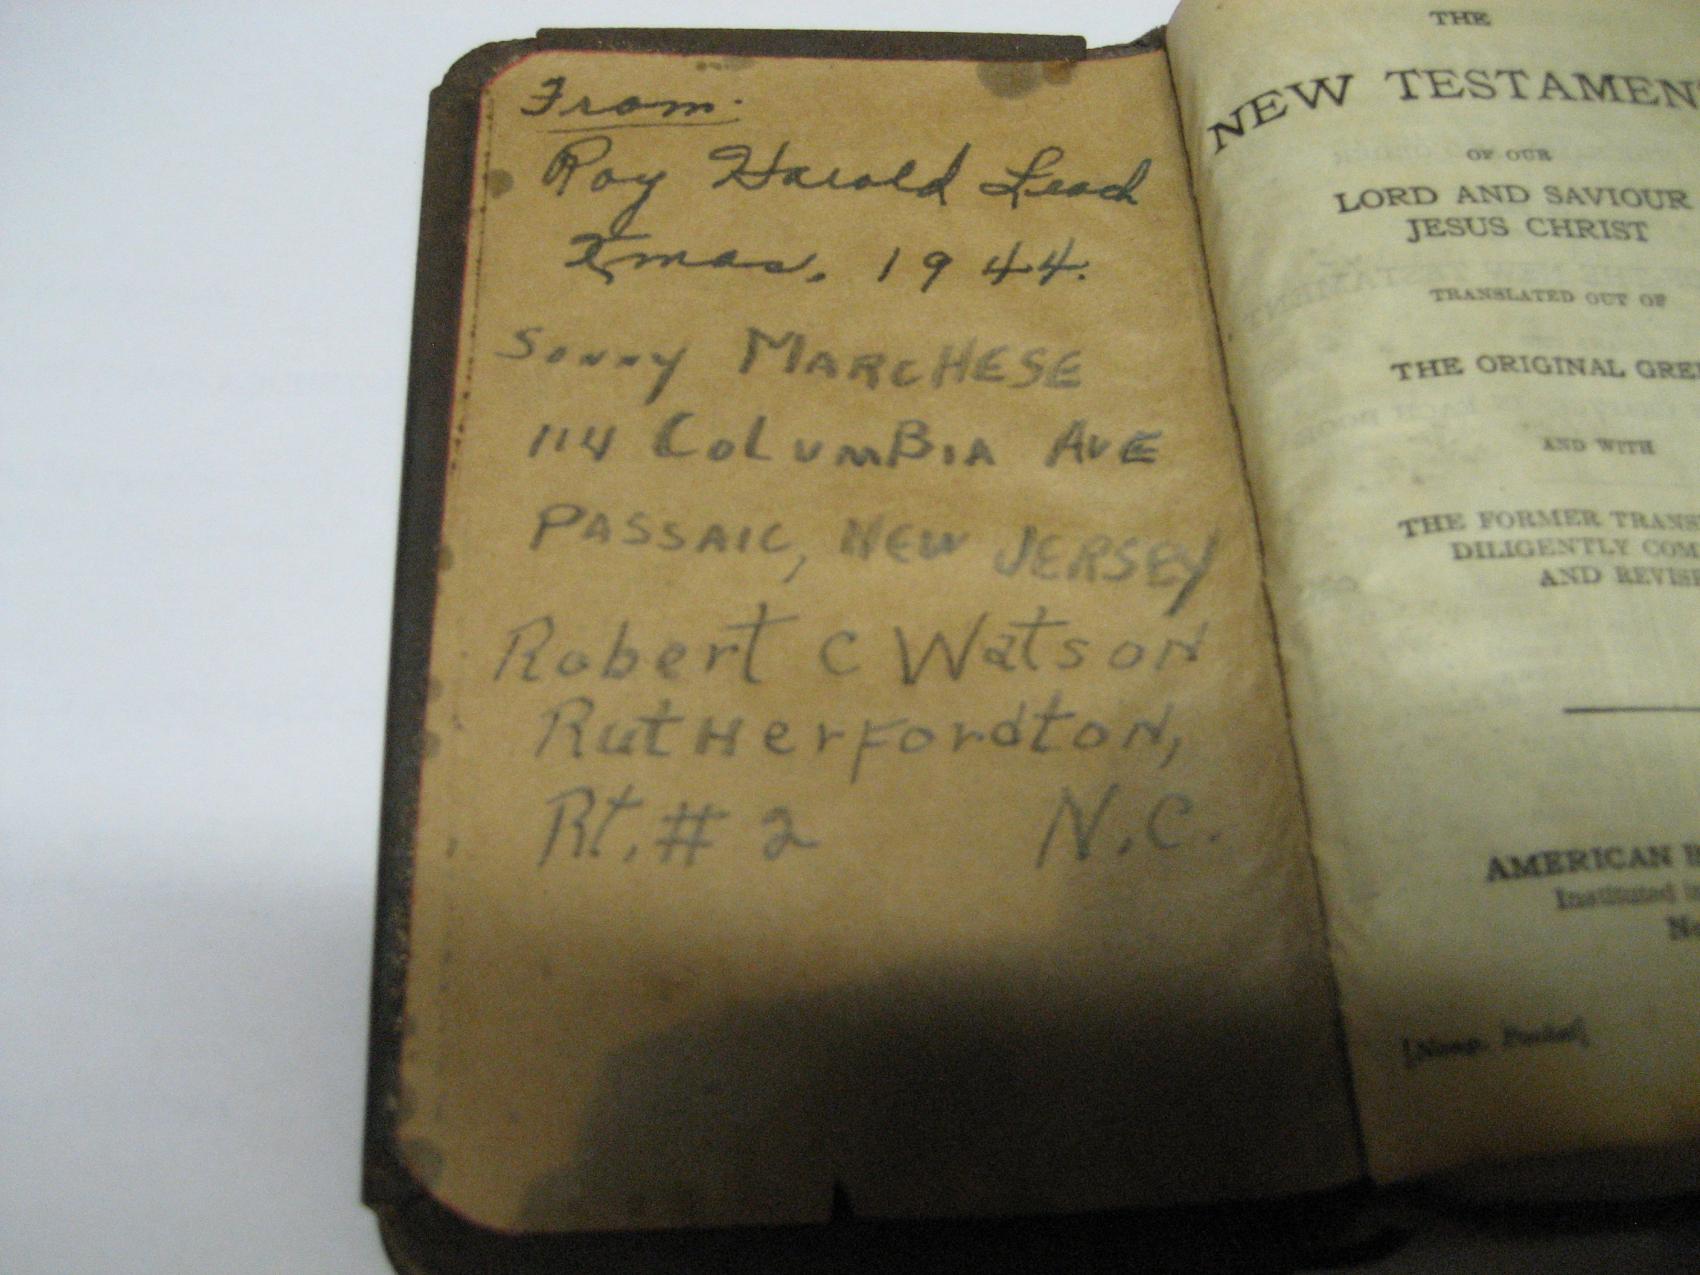 From:
Roy Harold Leach
Xmas, 1944.
Sonny MARCHESE
114 COLUMBIA AVE
PASSAIC, NEW JERSEY
Robert C Watson
Rutherfordton,
Rt. # 2 N.C.
THE
NEW TESTAMENT
OF OUR
LORD AND SAVIOUR
JESUS CHRIST
TRANSLATED OUT OF
THE ORIGINAL GREE
AND WITH
THE FORMER TRANS
DILIGENTLY COM
AND REVISE
AMERICAN B
Instituted i
Ne